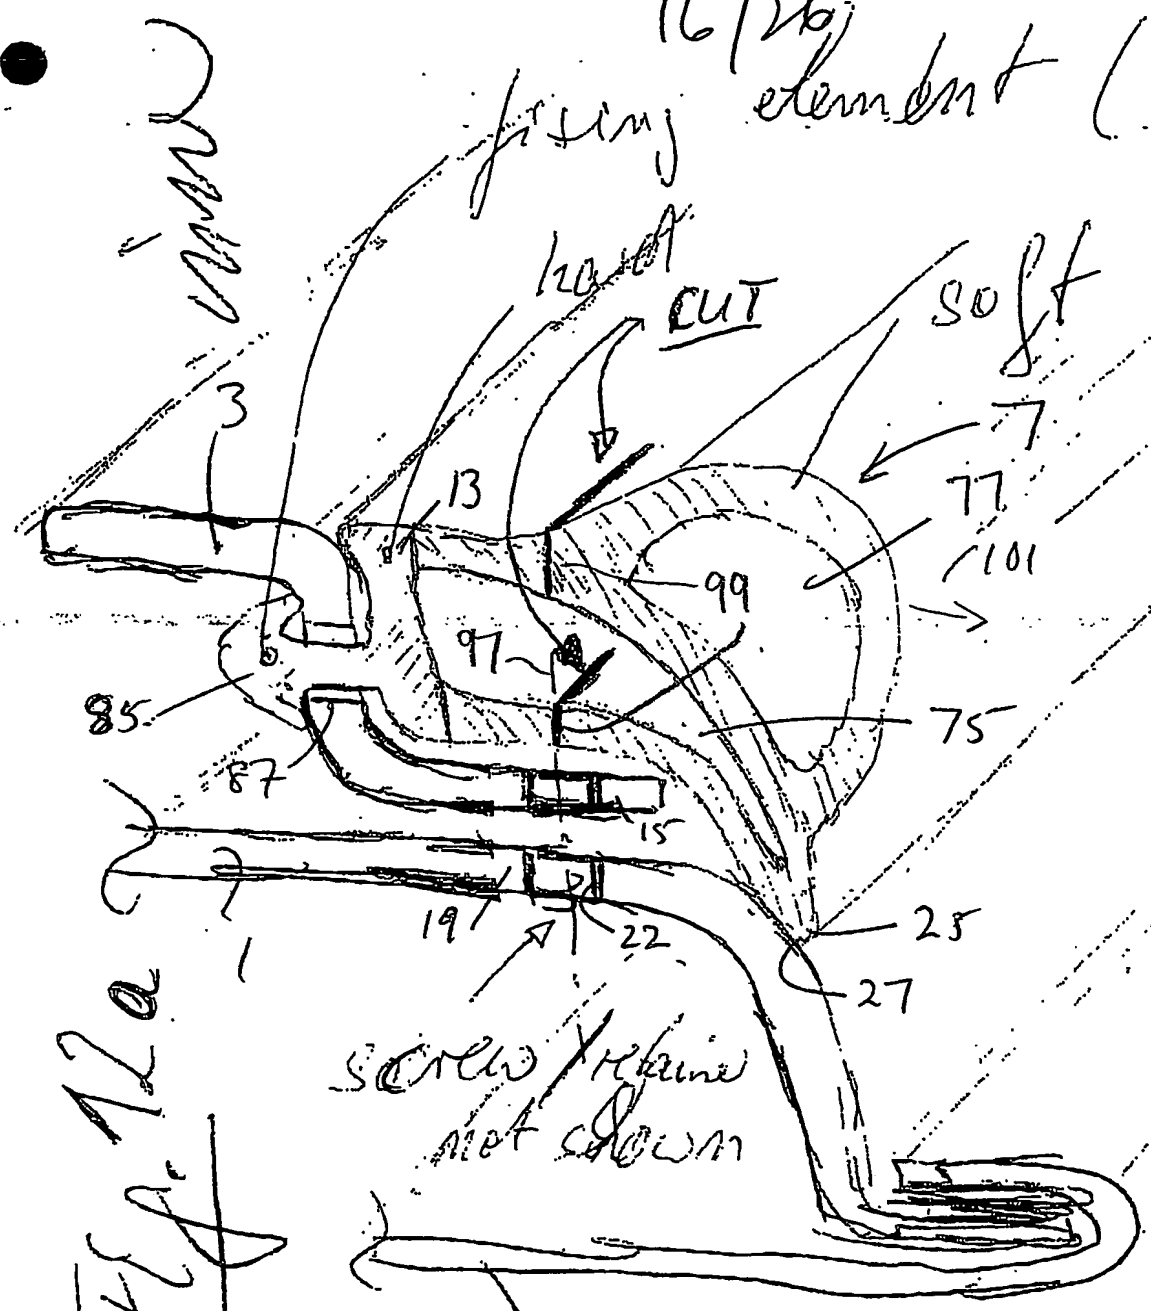 16/26
fixing element (
hard
CUT
soft
3
7
13
77
/101
99
97
85
75
87
15
19
22
25
1
27
screw/retaine
not shown
Fig. 12a